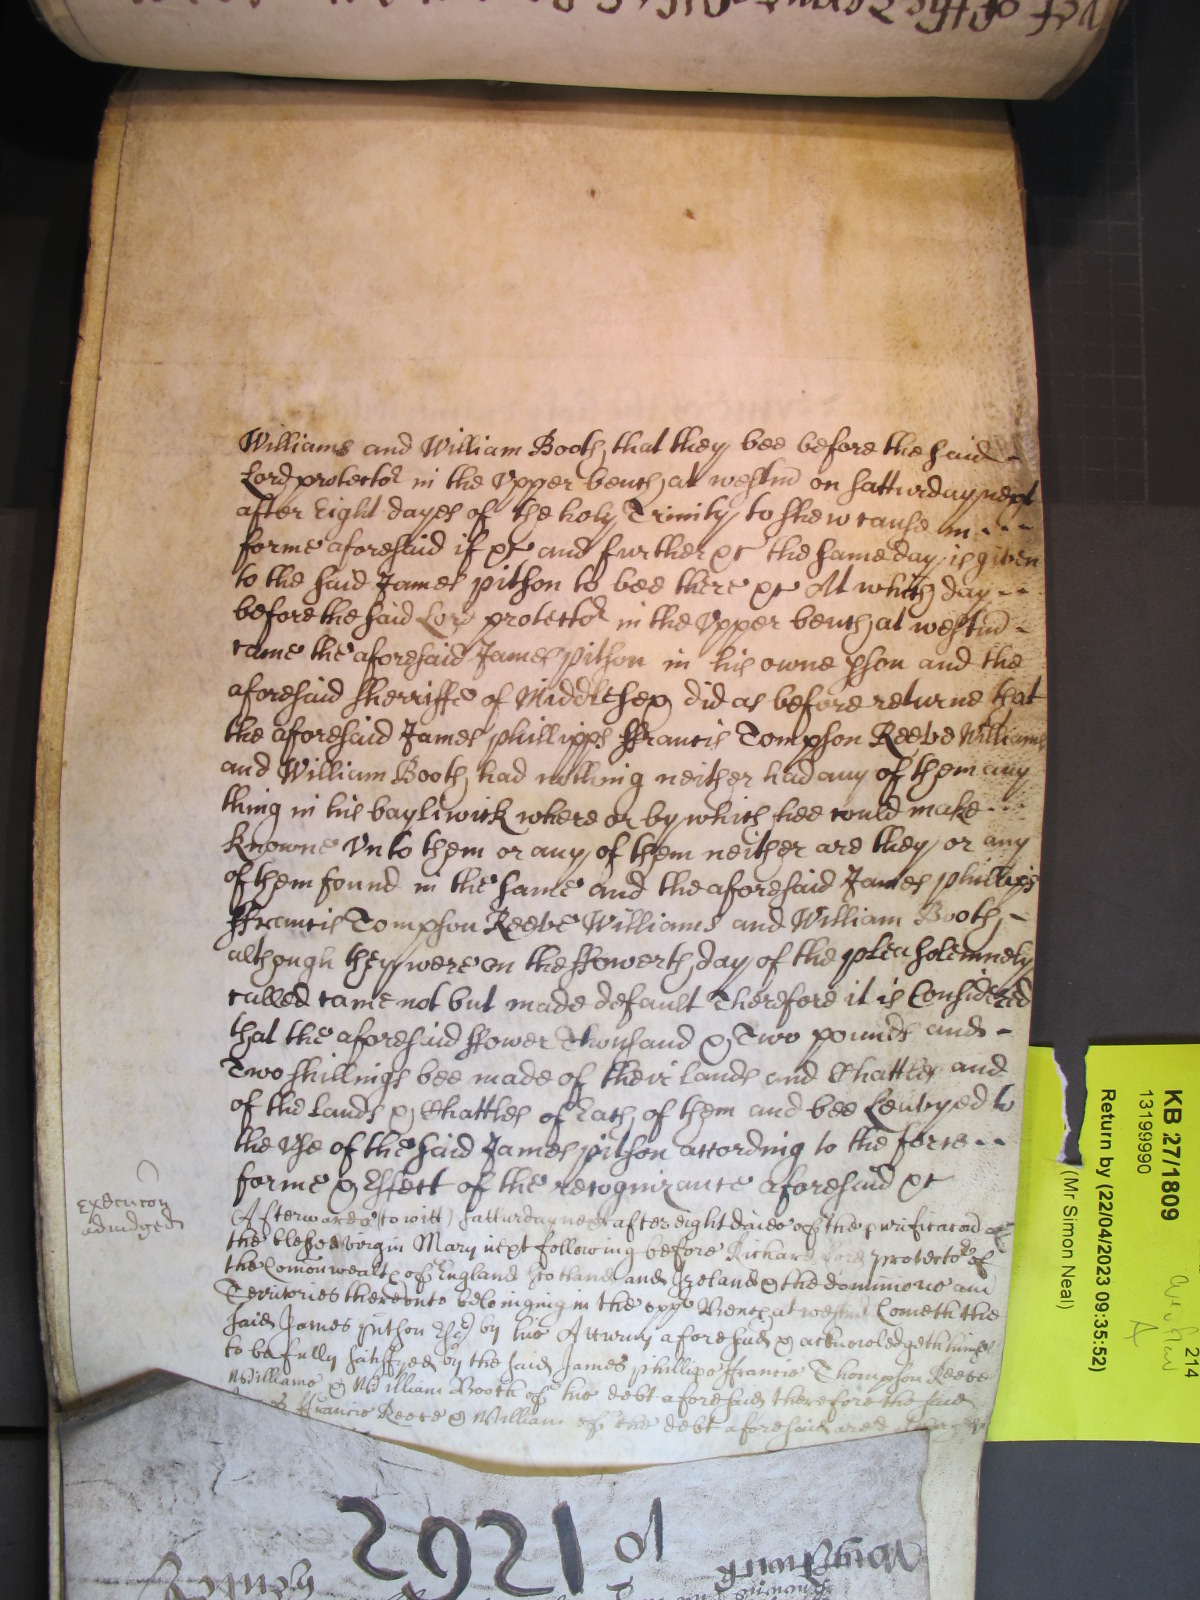 Williams and William Booth, that they bee before the said
Lord protector in the Upper bench at westm on Satturday next
after Eight dayes of the holy Trinity to shew cause in
forme aforesaid if &c and further &c the same day is given
to the said James pitson to bee there &c At which day
before the said Lord protector in the Upper bench at westm
came the aforesaid James pitson in his owne pson and the
aforesaid Sherriffe of Middlesex did as before returne that
the aforesaid James phillipps ffrancis Tompson Reeve Williams
and William Booth had nothing neither had any of them any
thing in his bayliwick where or by which hee could make
knowne Unto them or any of them neither are they or any
of them found in the same and the aforesaid James phillips
ffrancis Tompson Reeve Williams and William Booth,
although they were on the ffowerth day of the plea solemnely
called came not but made default Therefore it is Considered
that the aforesaid ffower Thousand & Two pounds and
Two shillings bee made of their Lands and Chattles and
of the Lands & Chattles of Each of them and bee Leavyed to
the Use of the said James pitson according to the force
forme & Effect of the recognizance aforesaid &c
Execucon
adiudged
Afterwards (to witt) Satturday next after eight daies of the purificacon of
the blessed virgin Mary next following before Richard Lord protector of
the Comonwealth of England Scotland and Ireland & the dominions and
Territories thereunto belonging in the upp Bench at westm Cometh the
said James pitson Esq by his Atturny aforesaid & acknowledgeth himself
to be fully satisfyed by the said James phillips ffrancis Thompson Reeve
Williams & William Booth of the debt aforesaid therefore the said
ffrancis Reeve & William of the debt aforesaid are
KB 27/1809
13199990
Return by (22/04/2023 09:35:52)
(Mr Simon Neal)
214
A